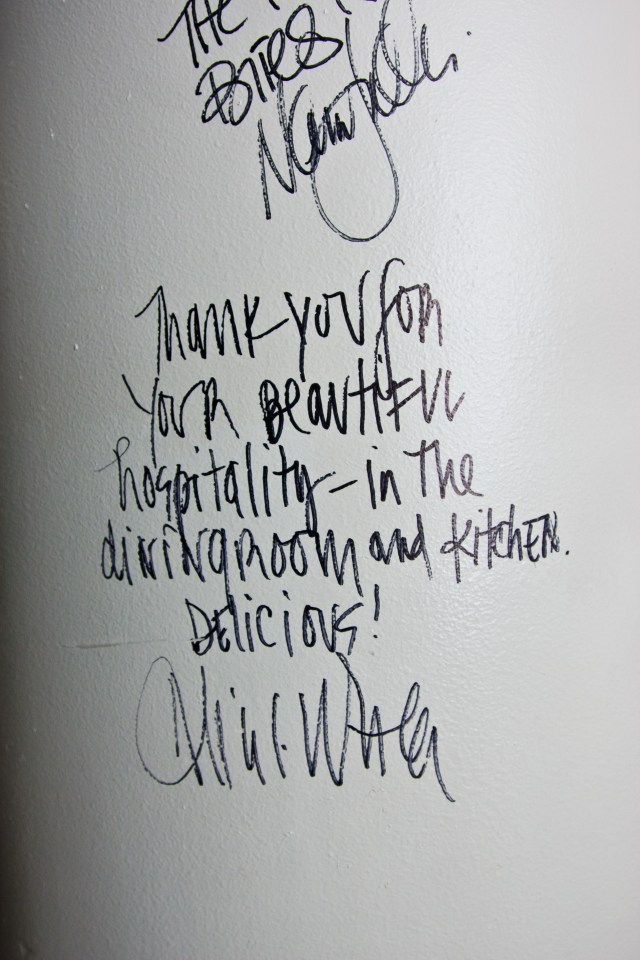 THE
BITES
Thank you for
your BEAUTIFUL
hospitality - in The
diningroom and KitcHEN.
DElicious!
Alice Waters